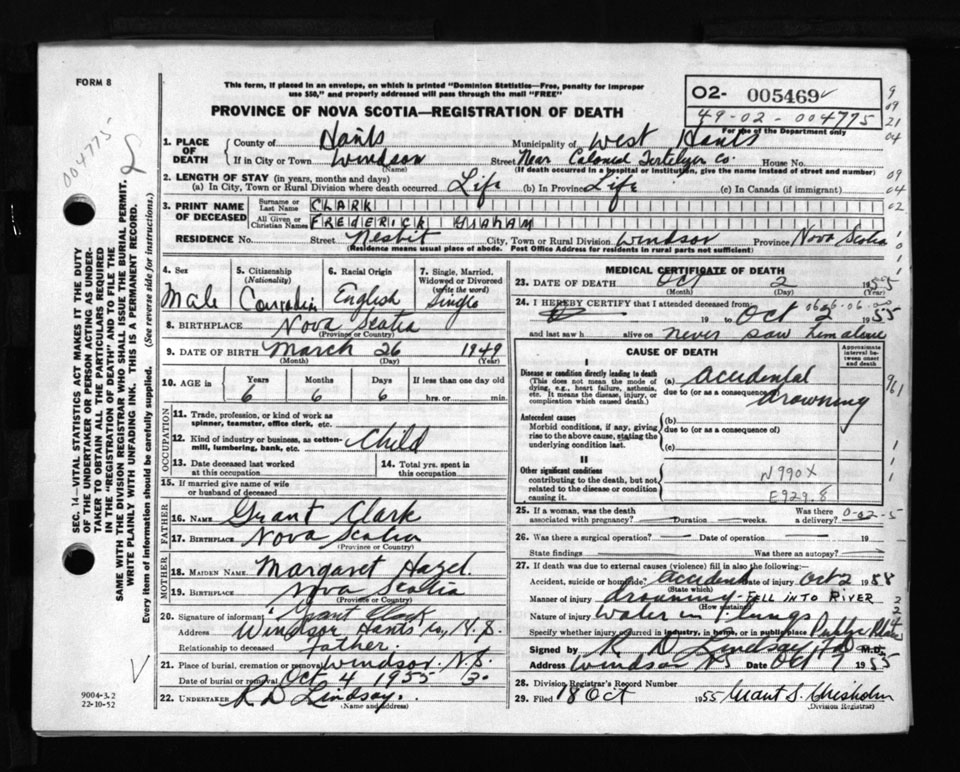 FORM 8
This form, if placed in an envelope, on which is printed "Dominion Statistics—Free, penalty for improper
use $50," and properly addressed will pass through the mail "FREE"
PROVINCE OF NOVA SCOTIA—REGISTRATION OF DEATH
O2- 005469
49-02-004775
For use of the Department only
004775
1. PLACE OF DEATH
County of Hants Municipality of West Hants
If in City or Town Windsor (Name) Street Near Colonial Fertilizer Co. House No.
(If death occurred in a hospital or institution, give the name instead of street and number)
2. LENGTH OF STAY (in years, months and days)
(a) In City, Town or Rural Division where death occurred Life (b) In Province Life (c) In Canada (if immigrant)
3. PRINT NAME OF DECEASED
Surname or Last Name CLARK
All Given or Christian Names FREDERICK GRAHAM
RESIDENCE No. Street Nesbit City, Town or Rural Division Windsor Province Nova Scotia
(Residence means usual place of abode. Post Office Address for residents in rural parts not sufficient)
4. Sex Male
5. Citizenship (Nationality) Canadian
6. Racial Origin English
7. Single, Married, Widowed or Divorced (write the word) Single
8. BIRTHPLACE Nova Scotia
(Province or Country)
9. DATE OF BIRTH March 26 1949
(Month) (Day) (Year)
10. AGE in Years Months Days If less than one day old
6 6 6 hrs. or min.
OCCUPATION
11. Trade, profession, or kind of work as spinner, teamster, office clerk, etc.
12. Kind of industry or business, as cotton-mill, lumbering, bank, etc. Child
13. Date deceased last worked at this occupation
14. Total yrs. spent in this occupation
15. If married give name of wife or husband of deceased
FATHER
16. NAME Grant Clark
17. BIRTHPLACE Nova Scotia
(Province or Country)
MOTHER
18. MAIDEN NAME Margaret Hazel
19. BIRTHPLACE Nova Scotia
(Province or Country)
20. Signature of informant Grant Clark
Address Windsor Hants Co, N.S.
Relationship to deceased Father.
21. Place of burial, cremation or removal Windsor. N.S.
Date of burial or removal Oct 4 1955
22. UNDERTAKER R D Lindsay.
(Name and address)
MEDICAL CERTIFICATE OF DEATH
23. DATE OF DEATH Oct 2 1955
(Month) (Day) (Year)
24. I HEREBY CERTIFY that I attended deceased from
19 to Oct 2 1955
and last saw h alive on never saw him alive
CAUSE OF DEATH
Approximate interval between onset and death
I
Disease or condition directly leading to death
(This does not mean the mode of dying, e.g., heart failure, asthenia, etc. It means the disease, injury, or complication which caused death.)
(a) Accidental Drowning
due to (or as a consequence of)
Antecedent causes
Morbid conditions, if any, giving rise to the above cause, stating the underlying condition last.
(b)
due to (or as a consequence of)
(c)
II
Other significant conditions
contributing to the death, but not related to the disease or condition causing it.
N990X
E929.8
25. If a woman, was the death associated with pregnancy? Duration weeks. Was there a delivery?
26. Was there a surgical operation? Date of operation 19
State findings Was there an autopsy?
27. If death was due to external causes (violence) fill in also the following:—
Accident, suicide or homicide? accident Date of injury Oct 2 1955
(State which)
Manner of injury drowning - FELL INTO RIVER
(How sustained)
Nature of injury Water in lungs
Specify whether injury occurred in industry, in home, or in public place Public Place
Signed by R D Lindsay M.D.
Address Windsor NS Date Oct 7 1955
28. Division Registrar's Record Number
29. Filed 18 Oct 1955 Grant S. Chisholm
(Division Registrar)
SEC. 14—VITAL STATISTICS ACT MAKES IT THE DUTY
OF THE UNDERTAKER OR PERSON ACTING AS UNDER-
TAKER TO OBTAIN ALL THE PARTICULARS REQUIRED
IN THE "REGISTRATION OF DEATH" AND TO FILE THE
SAME WITH THE DIVISION REGISTRAR WHO SHALL ISSUE THE BURIAL PERMIT.
WRITE PLAINLY WITH UNFADING INK. THIS IS A PERMANENT RECORD.
Every item of information should be carefully supplied. (See reverse side for instructions.)
9004-3.2
22-10-52